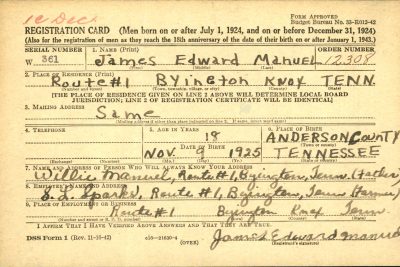 1C Dec.
FORM APPROVED
Budget Bureau No. 33-R012-42
REGISTRATION CARD (Men born on or after July 1, 1924, and on or before December 31, 1924)
(Also for the registration of men as they reach the 18th anniversary of the date of their birth on or after January 1, 1943.)
SERIAL NUMBER 1. NAME (Print) ORDER NUMBER
W 361 James Edward Manuel 12308
(First) (Middle) (Last)
2. PLACE OF RESIDENCE (Print)
Route #1 Byington Knox TENN.
(Number and street) (Town, township, village, or city) (County) (State)
[THE PLACE OF RESIDENCE GIVEN ON LINE 2 ABOVE WILL DETERMINE LOCAL BOARD
JURISDICTION; LINE 2 OF REGISTRATION CERTIFICATE WILL BE IDENTICAL]
3. MAILING ADDRESS
Same
4. TELEPHONE 5. AGE IN YEARS 6. PLACE OF BIRTH
18 ANDERSON COUNTY
DATE OF BIRTH (Town or county)
NOV. 9 1925 TENNESSEE
(Exchange) (Number) (Mo.) (Day) (Yr.) (State or country)
7. NAME AND ADDRESS OF PERSON WHO WILL ALWAYS KNOW YOUR ADDRESS
Willie Manuel, Route #1, Byington, Tenn. (Father)
8. EMPLOYER'S NAME AND ADDRESS
Sparks, Route #1, Byington, Tenn (Farmer)
9. PLACE OF EMPLOYMENT OR BUSINESS
Route #1 Byington Knox Tenn.
(Number and street or R. F. D. number) (Town) (County) (State)
I AFFIRM THAT I HAVE VERIFIED ABOVE ANSWERS AND THAT THEY ARE TRUE.
DSS Form 1 (Rev. 11-16-42) 16—21630-4 (OVER) James Edward Manuel
(Registrant's signature)